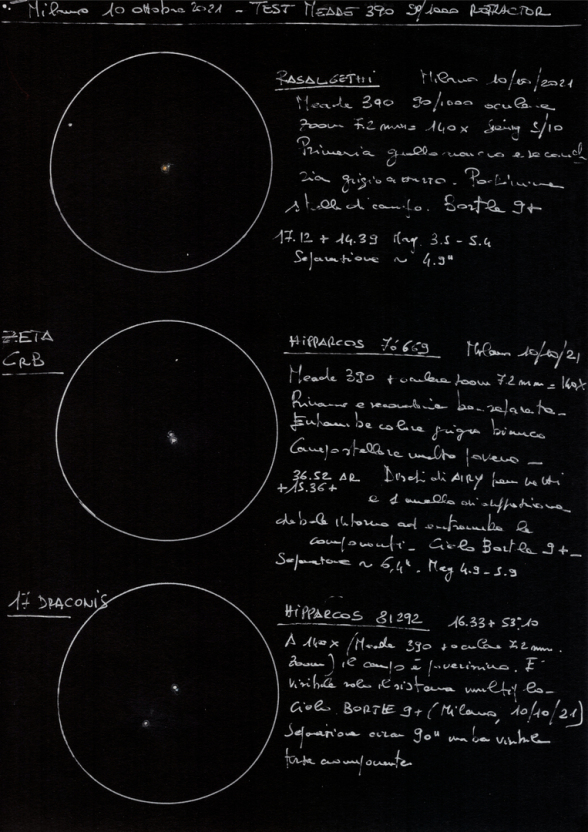 Milano 10 ottobre 2021 - TEST MEADE 390 90/1000 REFRACTOR
RASALGETHI Milano 10/10/2021
Meade 390 90/1000 oculare
zoom 7.2 mm = 140x Seeing 5/10
Primaria giallo e secondaria
grigio azzurro. Pochissime
stelle di campo. Bortle 9+
17.12 + 14.39 Mag. 3.5 - 5.4
Separazione ~ 4.9"
ZETA
CRB
HIPPARCOS 76669 Milano 10/10/21
Meade 390 + oculare zoom 7.2 mm = 140x
Primaria e secondaria ben separate -
Entrambe colore grigio bianco
Campo stellare molto povero -
36.52 AR Dischi di AIRY ben
+15.36+ e 1 anello di diffrazione
debole intorno ad entrambe le
componenti - Cielo Bortle 9+ -
Separazione ~ 6,4". Mag 4.9 - 5.9
17 DRACONIS
HIPPARCOS 81292 16.33 + 53°.10
A 140x (Meade 390 + oculare 7.2 mm.
zoom) il campo è poverissimo. E'
visibile solo il sistema multiplo -
Cielo BORTLE 9+ (Milano, 10/10/21)
Separazione circa 90" visibile
terza componente